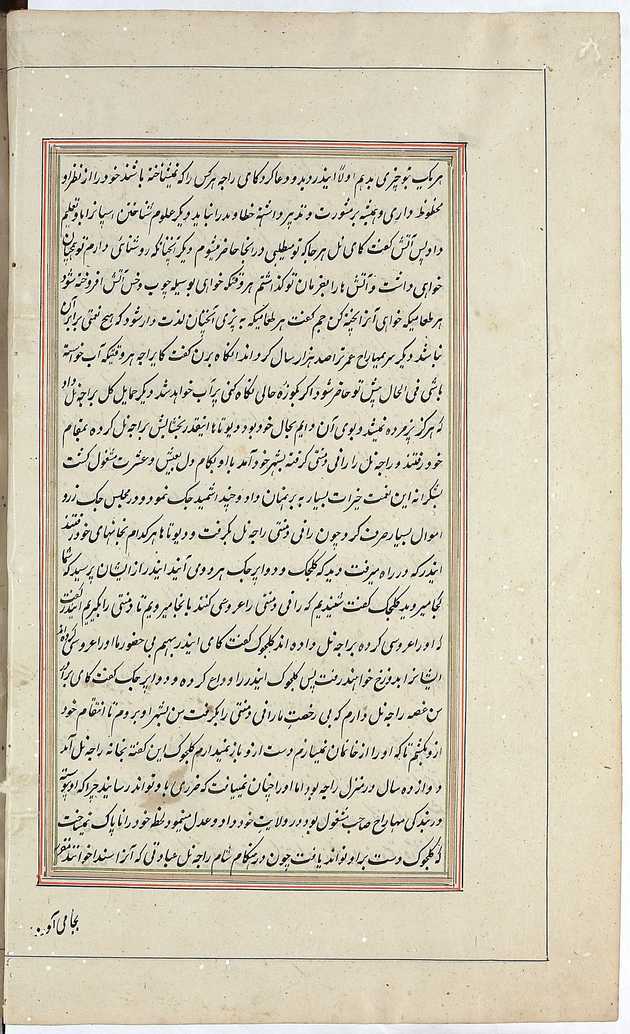 هر یک بتو چیزی بدیم اولاً ایندر دید و دعا کرد کای راجه هر کس را که نمیشناخته باشند خود را از نظر او
محفوظ داری و همیشه بر مشورت و تدبیر داشته خطا و بدرا نیابد دیگر علوم شناختن اسپانرا باو تعلیم
داد پس آتش گفت کای نل هر جا که تو میطلبی در آنجا حاضر میشوم دیگر آنچنانکه روشنائی دارم تو همچنان
خواهی داشت و آتش ها را بفرمان تو گذاشتم هر وقتیکه خواهی بوسیله چوب و خس آتش افروخته شود
هر طعامیکه خواهی آنرا پخته کن جم گفت هر طعامیکه به پزی آنچنان لذت دار شود که هیچ نعمتی برابر آن
نباشد دیگر سر مهاراج عمر ترا صد هزار سال گرداند انگاه برن گفت کایراجه هر وقتیکه آب خواسته
باشی فی الحال پیش تو حاضر شود اگر بکوزه خالی نگاه کنی پر آب خواهد شد دیگر حمایل گل براجه نل داد
که هرگز پژمرده نمیشد و بوی آن دایم بحال خود بود دیوتاها اینقدر بخشایش براجه نل کرده بمقام
خود رفتند و راجه نل را رانی دمنتی گرفته بشهر خود آمد با او بکام دل بعیش و عشرت مشغول گشت
بشکرانه این نعمت خیرات بسیار به برهمنان داد و چند اشمید جک نمود و در مجلس جک زر و
اموال بسیار صرف کرد چون رانی دمنتی راجه نل بگرفت و دیوتاها هر کدام بخانهای خود رفتند
ایندر که در راه میرفت دید که کلجک و دواپر جک هر دو می آیند ایندر از ایشان پرسید که شما
کجا میروید کلجک گفت شنیدیم که رانی دمنتی را عروسی کنند بآنجا میرویم تا دمنتی را بگیریم ایندر گفت
که او را عروسی کرده براجه نل داده اند کلجوک گفت کای ایندر بهیم بی حضور ما او را عروسی کرده
ایشانرا بدوزخ خواهند رفت پس کلجوک ایندر را وداع کرده و دواپر جک گفت کای برادر
من غصه راجه نل دارم که بی رخصت ما رانی دمنتی را بگرفت من بشهر او بروم تا انتقام خود
ازو بکشم تا که او را از خانمان نمیسازم دست ازو باز نمیدارم کلجوک این گفته بخانه راجه نل آمد
دوازده سال در منزل راجه بود اما او را چنان نمییافت که ضرری باو تواند رسانید چرا که او پیوسته
در بندگی مهاراج صاحب مشغول بود در ولایت خود داد و عدل مینمود لحظه خود را ناپاک نمیساخت
که کلجوک دست بر او تواند یافت چون در هنگام شام راجه نل عبادتی که آنرا سندا خوانند
بجا می آورد